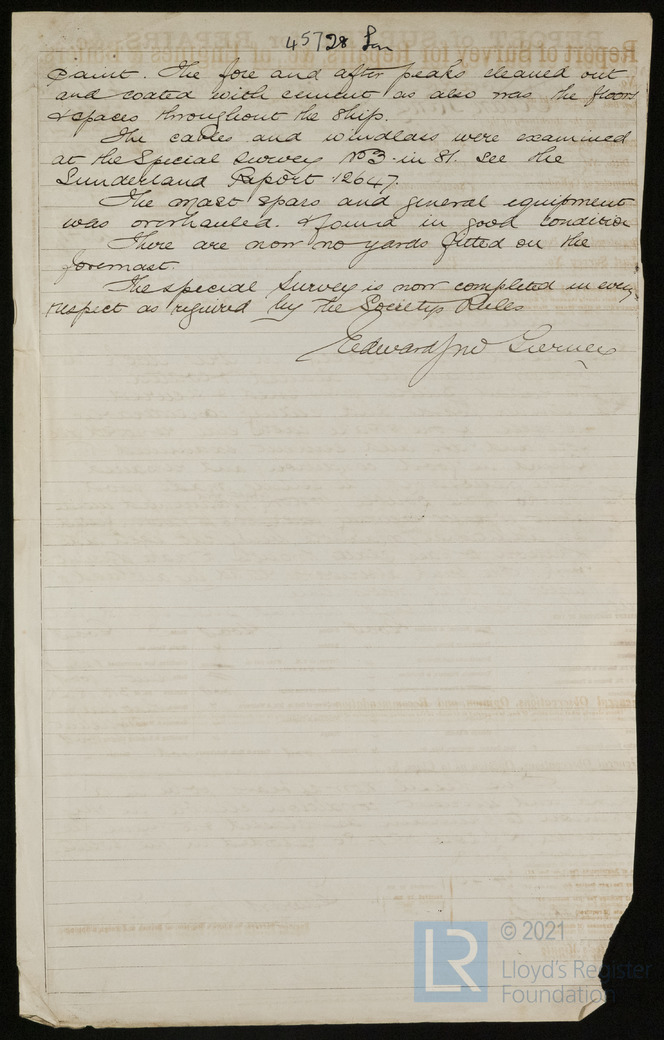 45728 Lon
paint. The fore and after peaks cleaned out
and coated with cement as also was the floors
& spaces throughout the Ship.
The cables and windlass were examined
at the Special Survey No3. in 81. see the
Sunderland Report 12647.
The mast spars and general equipment
was overhauled. & found in good condition
There are now no yards fitted on the
foremast.
The special Survey is now completed in every
respect as required by the Societys Rules
Edward Jno
© 2021
LR
Lloyd's Register
Foundation